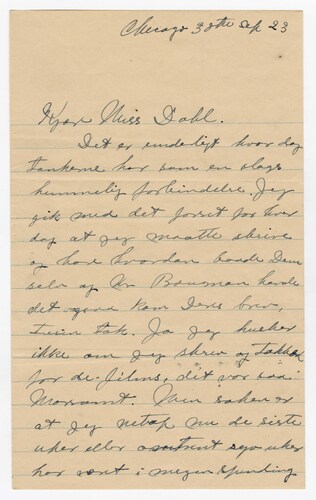 Chicago 30th Sep 23
Kjære Miss Dahl.
Det er underligt hvordan
tankerne har som en slags
hemmelig forbindelse. Jeg
gik med det forset for hver
dag at jeg maatte skrive
og høre hvordan baade Dem
selv og Mr Bowman havde
det, kom Deres brev,
tusin tak. Ja jeg husker
ikke om jeg skrev og takket
for de films, dit var saa
Morsomt. Men saken er
at jeg netop nu de siste
uker eller uker
har vært i megen spænding